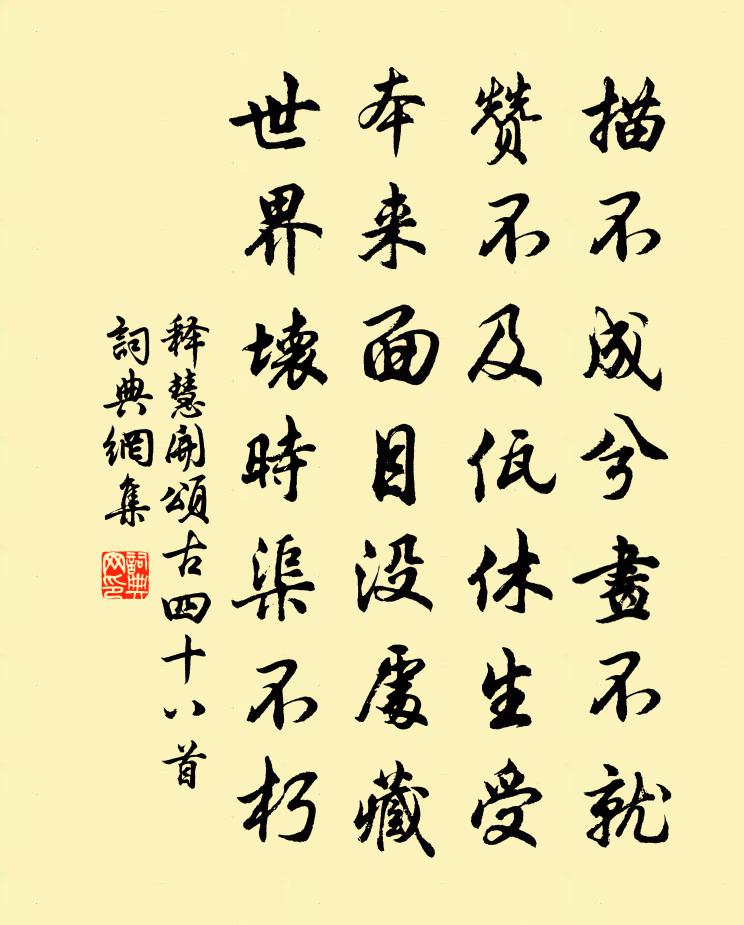 描不成兮畫不就
贊不及佤休生受
本来面目没處藏
世界壞時渠不朽
释慧開頌古四十八首
詞典網集
詞典网印